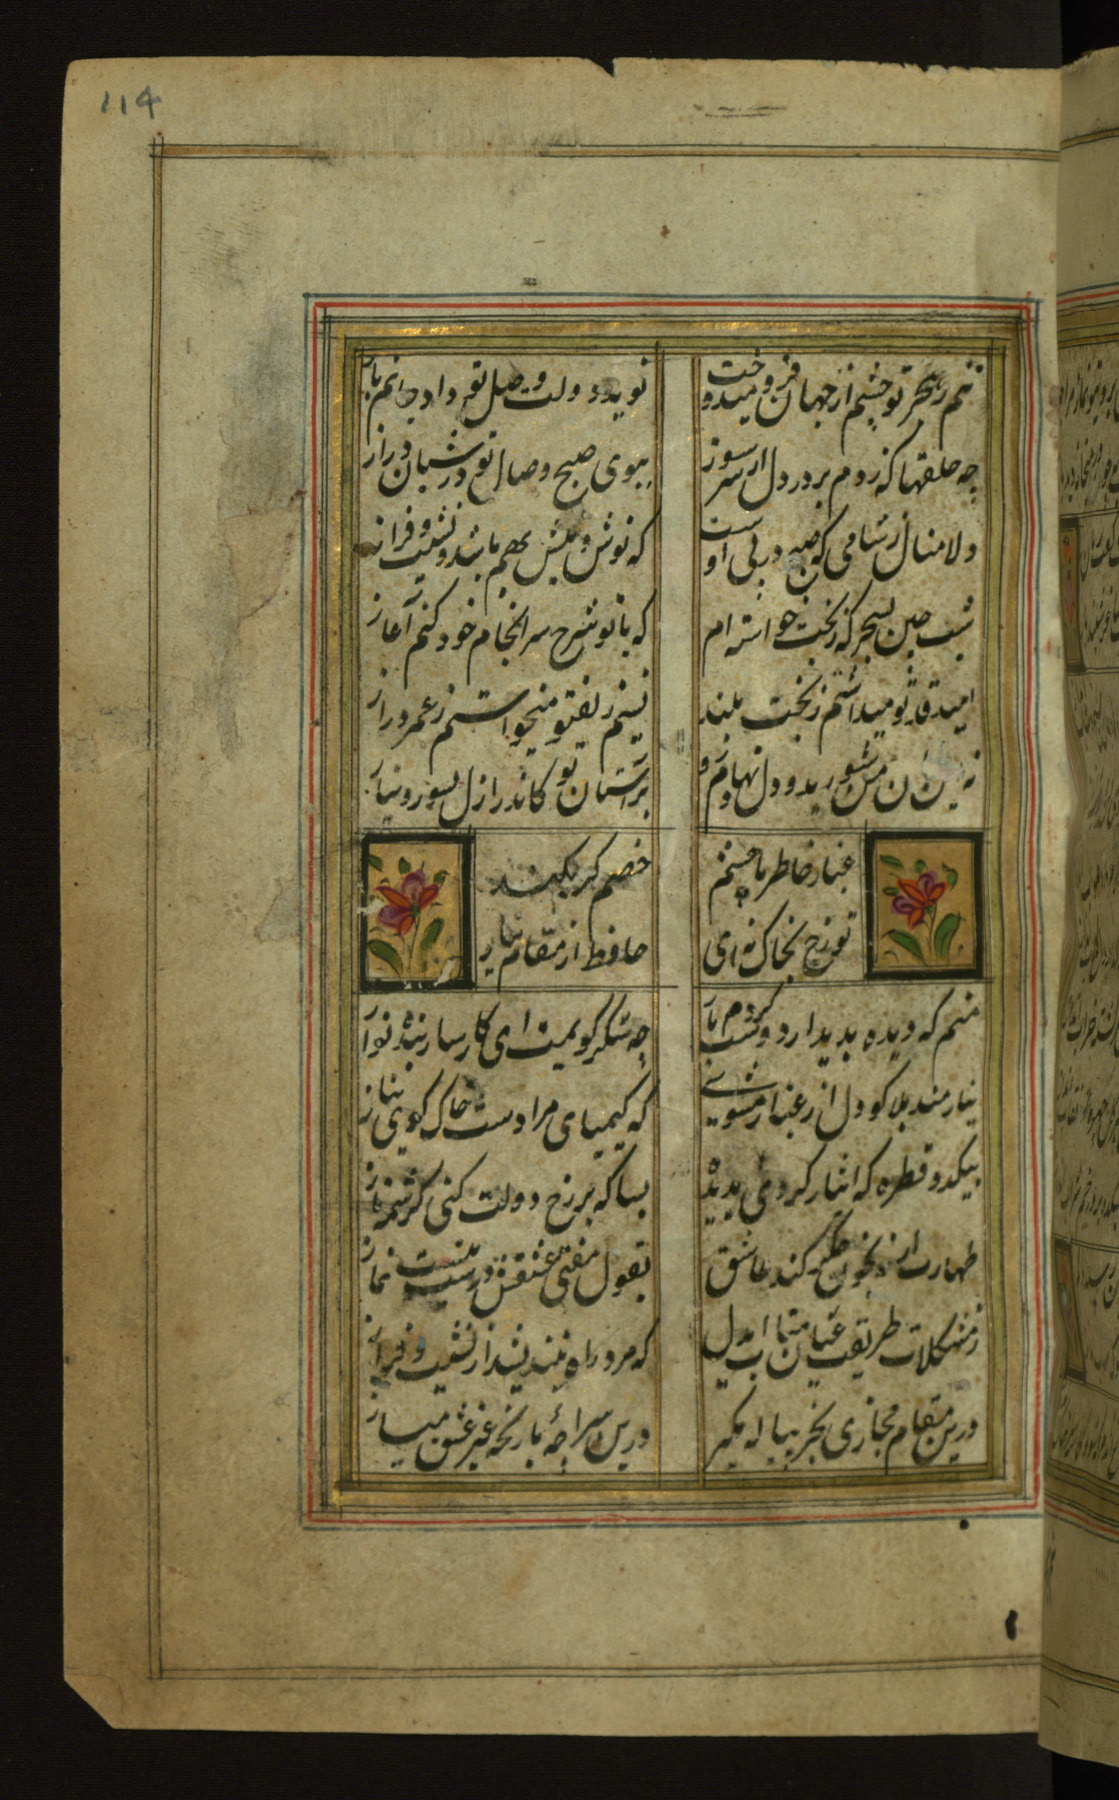 114
منم ز هجر تو چشم از جهان فرو میدوخت
نوید دولت وصل تو داد جانم باز
چه حلقها که زدم بر در دل از سر سوز
ببوی صبح وصال تو در شبان دراز
دلا منال ز شامی که صبح در پی اوست
که نوش و نیش بهم باشد و نشیب و فراز
شب چنین بسحر که ز بخت خواسته ام
که با تو شرح سرانجام خود کنم آغاز
امید قد تو میداشتم ز بخت بلند
نسیم زلف تو میخواستم ز عمر دراز
نه این زمان من شوریده دل نهادم رو
بر آستان تو کاندر ازل بسوز و نیاز
غبار خاطر ما چشم
خصم کر بکند
تو رخ بخاک نه ای
حافظ از مقام نیاز
منم که دیده بدیدار دوست کردم باز
چه شکر گویمت ای کارساز بنده نواز
نیازمند بلا کو دل از غبار مشوی
که کیمیای مرادست خاک کوی نیاز
بیکدو قطره که ایثار کردی ای دیده
بسا که بر رخ دولت کنی کرشمه ناز
طهارت ار نه بخون جگر کند عاشق
بقول مفتی عشقش درست نیست نماز
ز مشکلات طریقت عنان متاب ایدل
که مرد راه نیندیشد از نشیب و فراز
درین مقام مجازی بجز پیاله مگیر
درین سراچهٔ بازیچه غیر عشق مباز